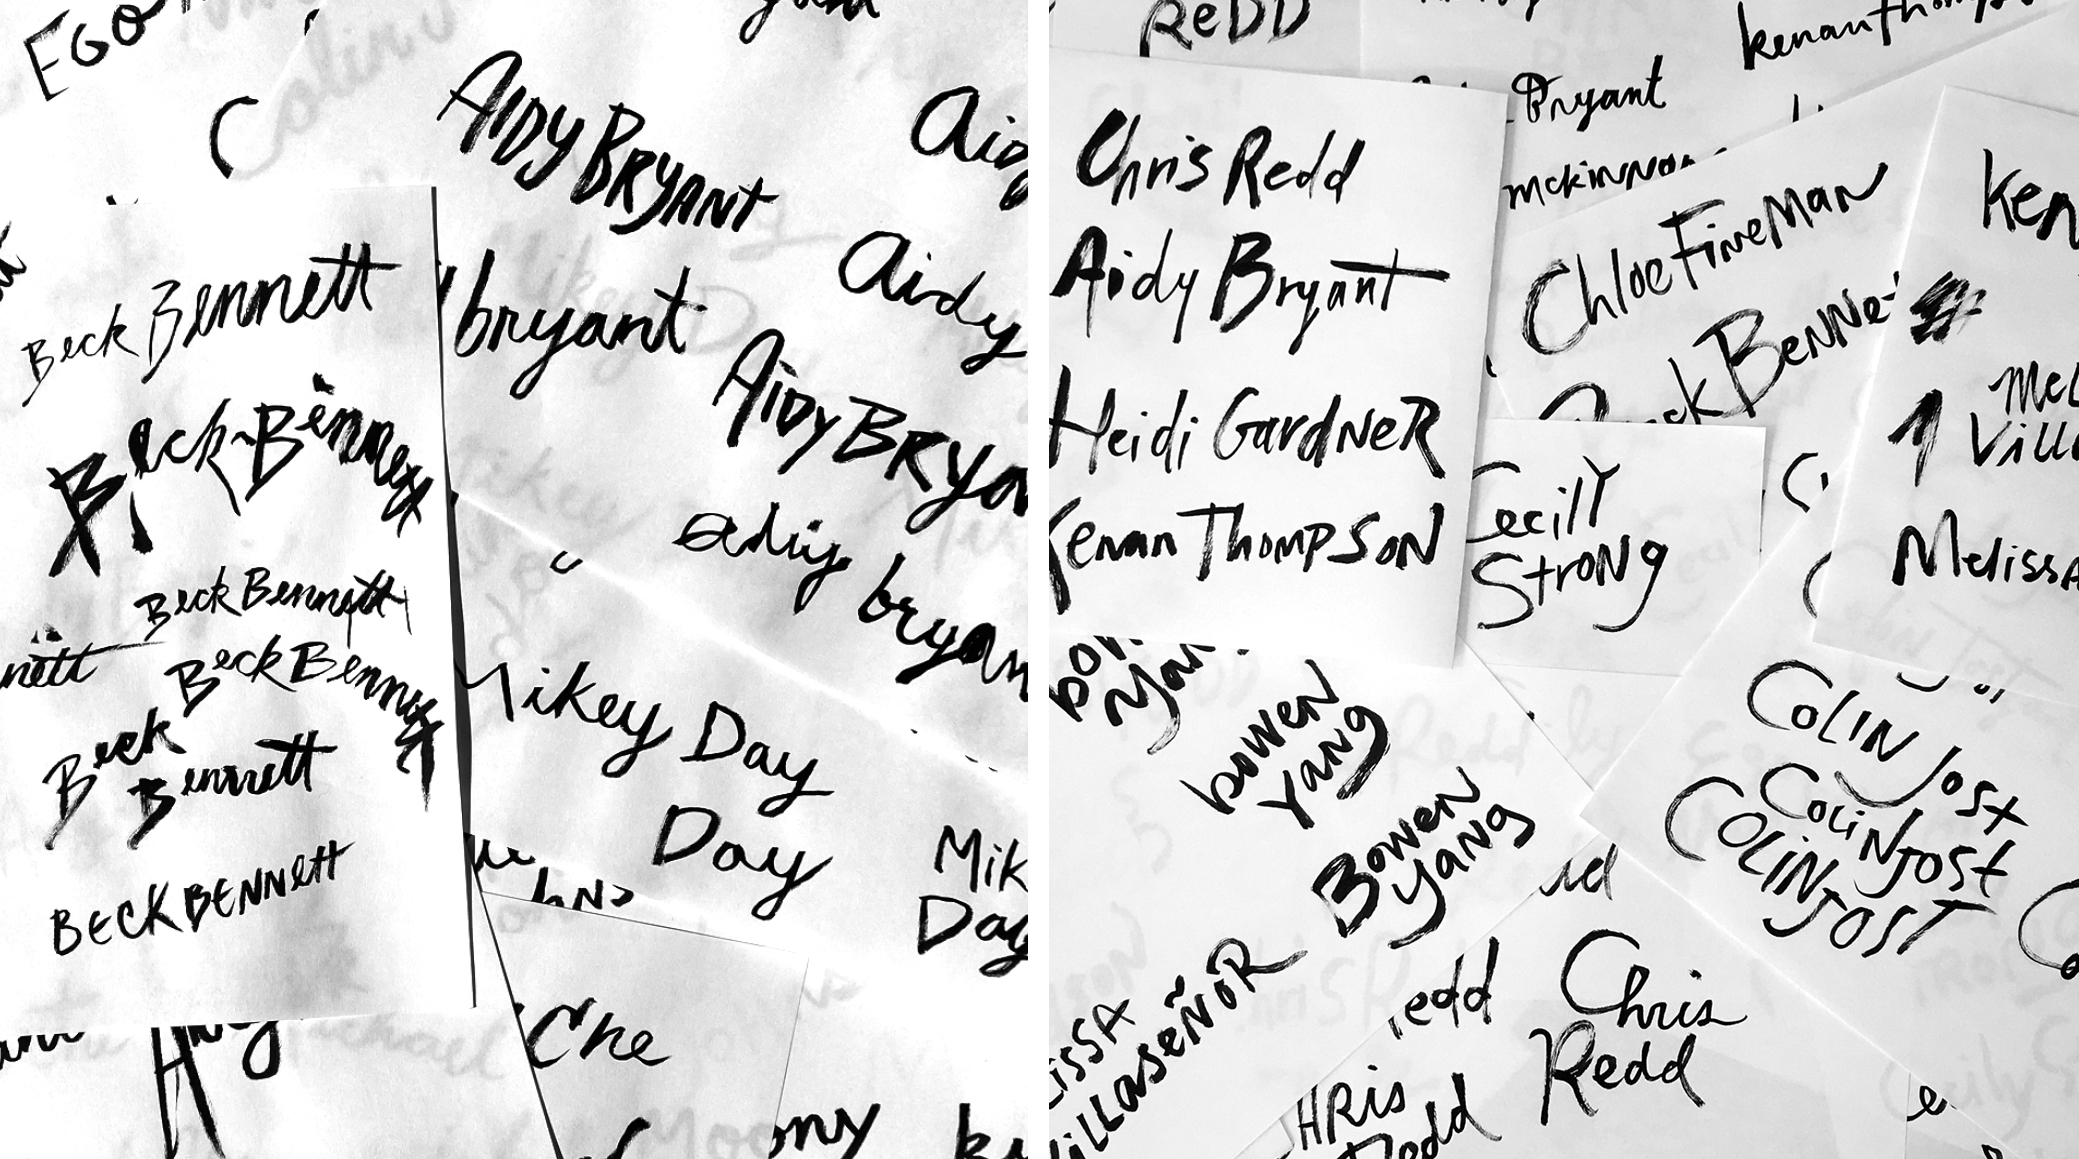 EGO
Colin J
AIDY BRYANT
Aidy
bryant
Aidy
Beck Bennett
Aidy BRYAN
Beck Bennett
bryan
Beck Bennett
nett
Beck Bennett
Mikey Day
Beck
Bennett
Day
Mik
Day
BECK BENNett
Che
Michael
ony
ReDD
kenan thomps
Bryant
Chris Redd
mckinnon
Ken
Aidy Bryant
Chloe FineMAN
Beck BeNNe
Mel
Villa
Heidi GardNeR
Cecily
StroNg
Kenan ThompSoN
MelissA
boWeN
Yang
BoweN
yaNg
CoLIN Jost
ColiN Jost
COLIN JOST
LissA
ViLLaseñoR
edd
Chris
Redd
HRis
Redd